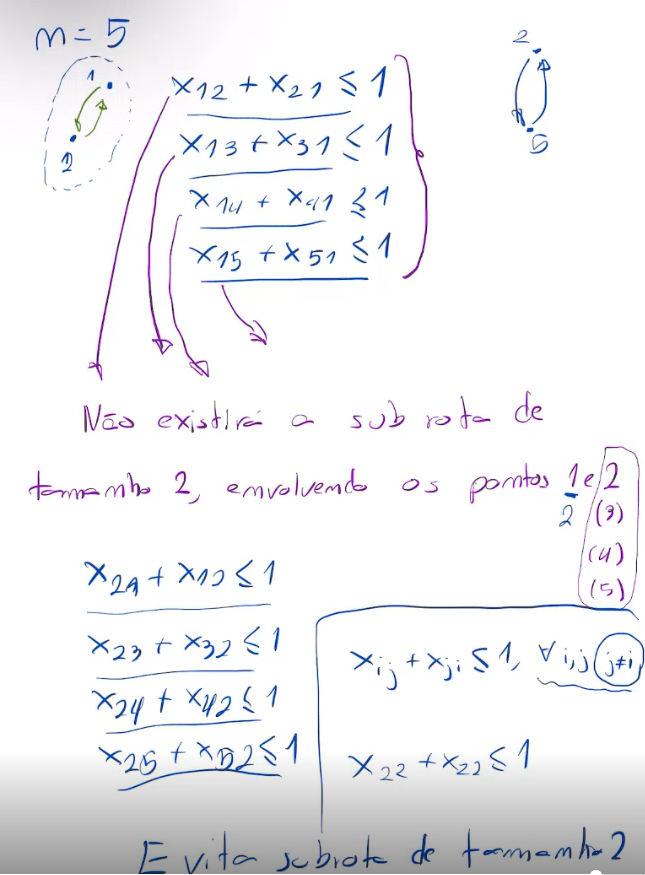 n = 5
1
2
x12 + x21 ≤ 1
x13 + x31 ≤ 1
x14 + x41 ≤ 1
x15 + x51 ≤ 1
2
5
Não existirá a sub rota de
tamanho 2, envolvendo os pontos 1 e 2
2 (3)
(4)
(5)
x21 + x12 ≤ 1
x23 + x32 ≤ 1
x24 + x42 ≤ 1
x25 + x52 ≤ 1
xij + xji ≤ 1, ∀ i,j j≠i
x22 + x22 ≤ 1
Evita subrota de tamanho 2